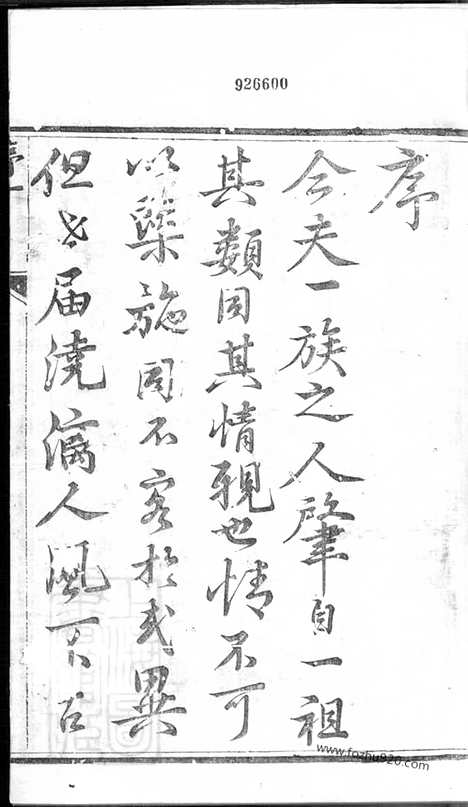 926600
序
今夫一族之人肇自一祖
其類同其情親也情不可
以槩施固不容於或異
但世届澆漓人風不古
www.fozhu920.com